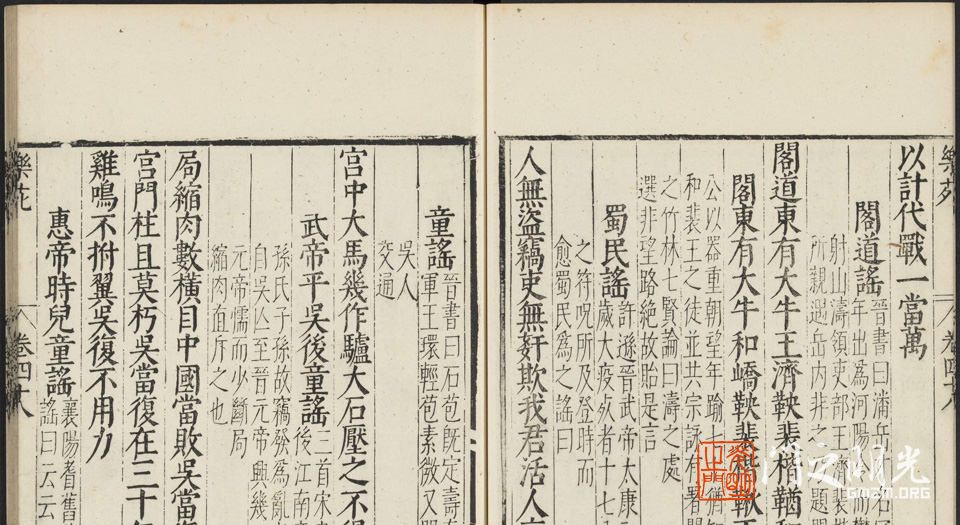 樂苑 卷四十八
以計代戰一當萬
閣道謠
晉書曰潘岳
年出為河陽
射山濤領吏部王濟裴
所親遇岳内非之 題
閣道東有大牛王濟鞅裴楷鞧和
閣東有大牛和嶠鞅裴楷鞦王
公以器重朝望年踰七十猶知
和裴王之徒並共宗詠有署閣
之竹林七賢論曰濤之處
選非望路絕故貽是言
蜀民謠
許遜晉武帝太康元
歲大疫死者十七八
之符呪所及登時而
愈蜀民為之謠曰
人無盜竊吏無奸欺我君活人
童謠
晉書曰石苞旣定壽
軍王環輕苞素微又
吳人
交通
宮中大馬幾作驢大石壓之不得
武帝平吳後童謠
三首宋
後江南
孫氏子孫故竊發為亂
自吳亡至晉元帝興幾
元帝懦而少斷局
縮肉直斥之也
局縮肉數橫目中國當敗吳當
宮門柱且莫朽吳當復在三十年
雞鳴不拊翼吳復不用力
惠帝時兒童謠
襄陽耆舊
謠曰云云
樂苑 卷四十八
GMZM.ORG